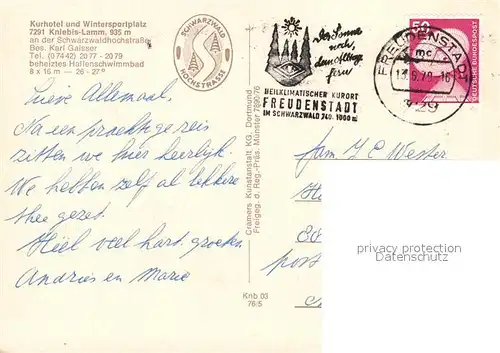 Kurhotel und Wintersportplatz
7291 Kniebis-Lamm, 935 m
an der Schwarzwaldhochstraße
Bes. Karl Gaisser
Tel. (07442) 2077 - 2079
beheiztes Hallenschwimmbad
8 x 16 m — 26 - 27°
SCHWARZWALD
HOCHSTRASSE
Der Sonne
nah,
dem Alltag
fern
HEILKLIMATISCHER KURORT
FREUDENSTADT
IM SCHWARZWALD 740-1000 m
FREUDENSTADT
mc
50
DEUTSCHE BUNDESPOST
Lieve Allemaal.
Na een prachtige reis
zitten we hier heerlijk.
We hebben zelf al lekkere
thee gezet.
Hiel veel hart. groeten
Andries en Marie
Cramers Kunstanstalt KG, Dortmund
Freigeg. d. Reg.-Präs. Münster 7890/76
Knb 03
76/5
fam. J C Wester
privacy protection
privacy protection